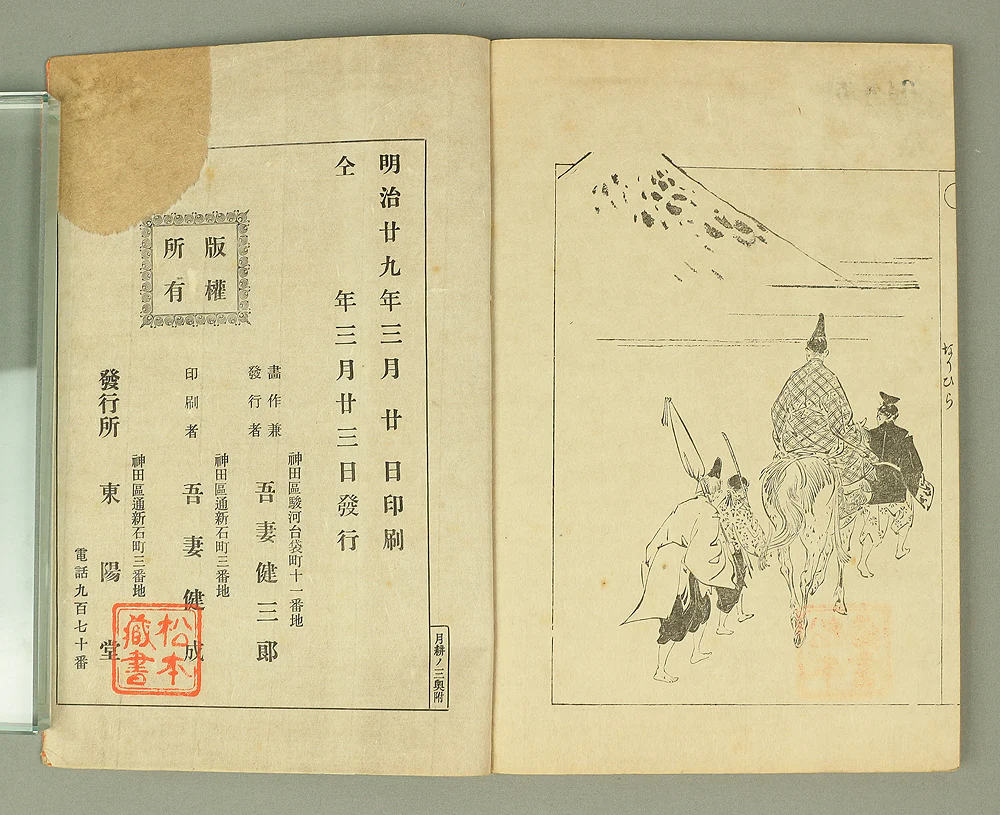 なりひら
明治廿九年三月廿日印刷
仝年三月廿三日發行
版權
所有
畵作兼
發行者
神田區駿河台袋町十一番地
吾妻健三郎
印刷者
神田區通新石町三番地
吾妻健成
發行所
神田區通新石町三番地
東陽堂
電話九百七十番
月耕ノ三奧附
松本
藏書